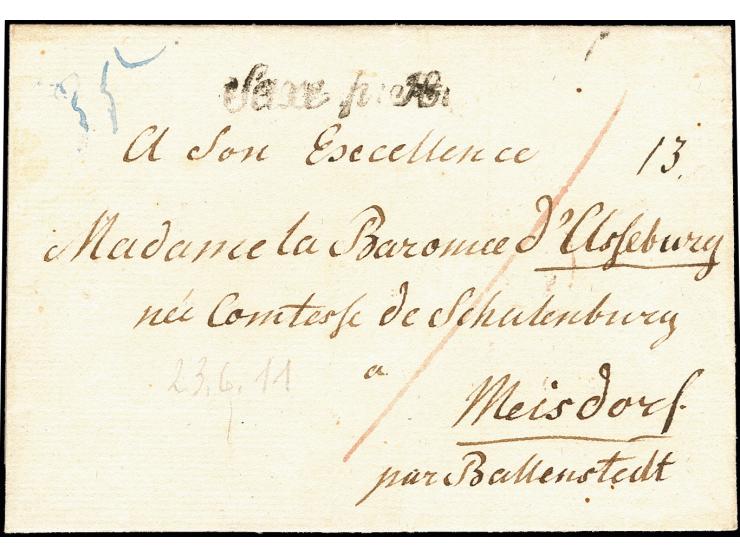 35
Saxe p. H.
A Son Excellence
13.
Madame la Baronnee d'Asseburg
née Comtesse de Schulenburg
23.6.11
a
Meisdorf
par Ballenstedt